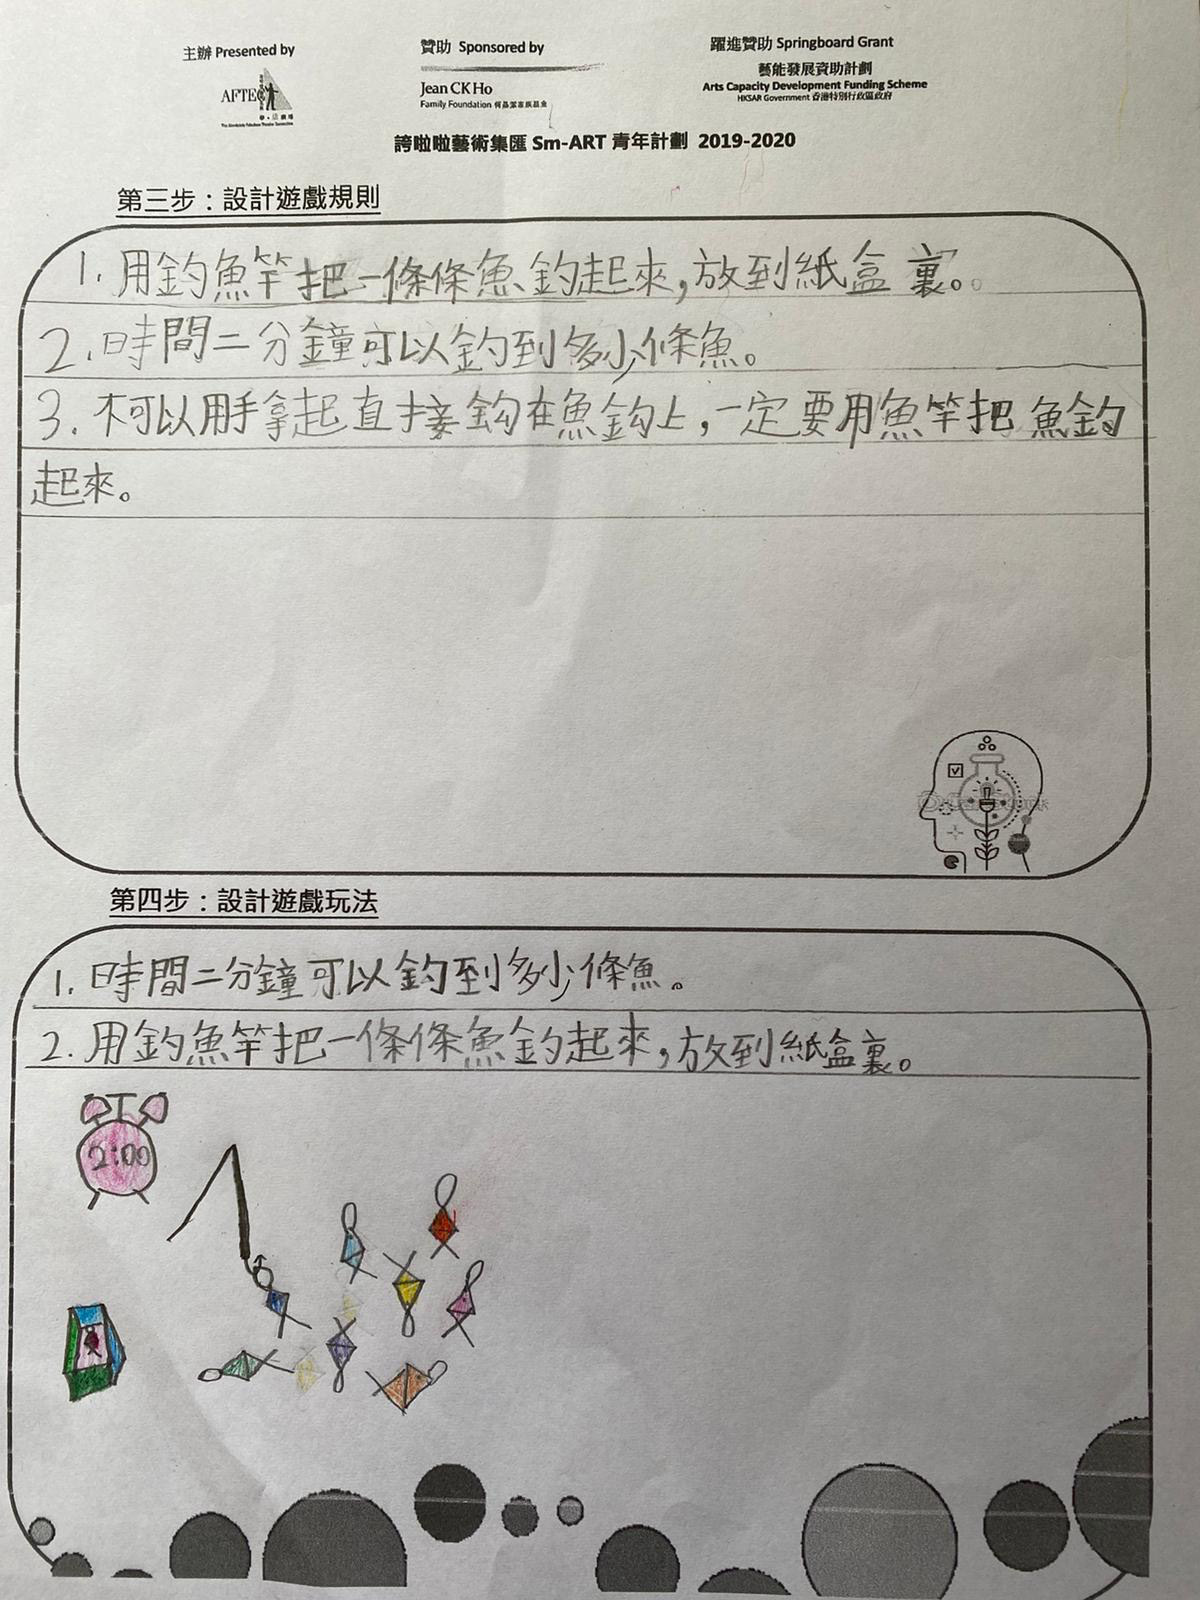 主辦 Presented by
贊助 Sponsored by
躍進贊助 Springboard Grant
AFTEC
學·活劇場
The Absolutely Fabulous Theatre Connection
Jean CK Ho
Family Foundation 何晶潔家族基金
藝能發展資助計劃
Arts Capacity Development Funding Scheme
HKSAR Government 香港特別行政區政府
誇啦啦藝術集匯 Sm-ART 青年計劃 2019-2020
第三步：設計遊戲規則
1. 用釣魚竿把一條條魚釣起來,放到紙盒裏。
2. 時間二分鐘可以釣到多少條魚。
3. 不可以用手拿起直接鈎在魚鈎上,一定要用魚竿把魚釣
起來。
第四步：設計遊戲玩法
1. 時間二分鐘可以釣到多少條魚。
2. 用釣魚竿把一條條魚釣起來,放到紙盒裏。
2:00